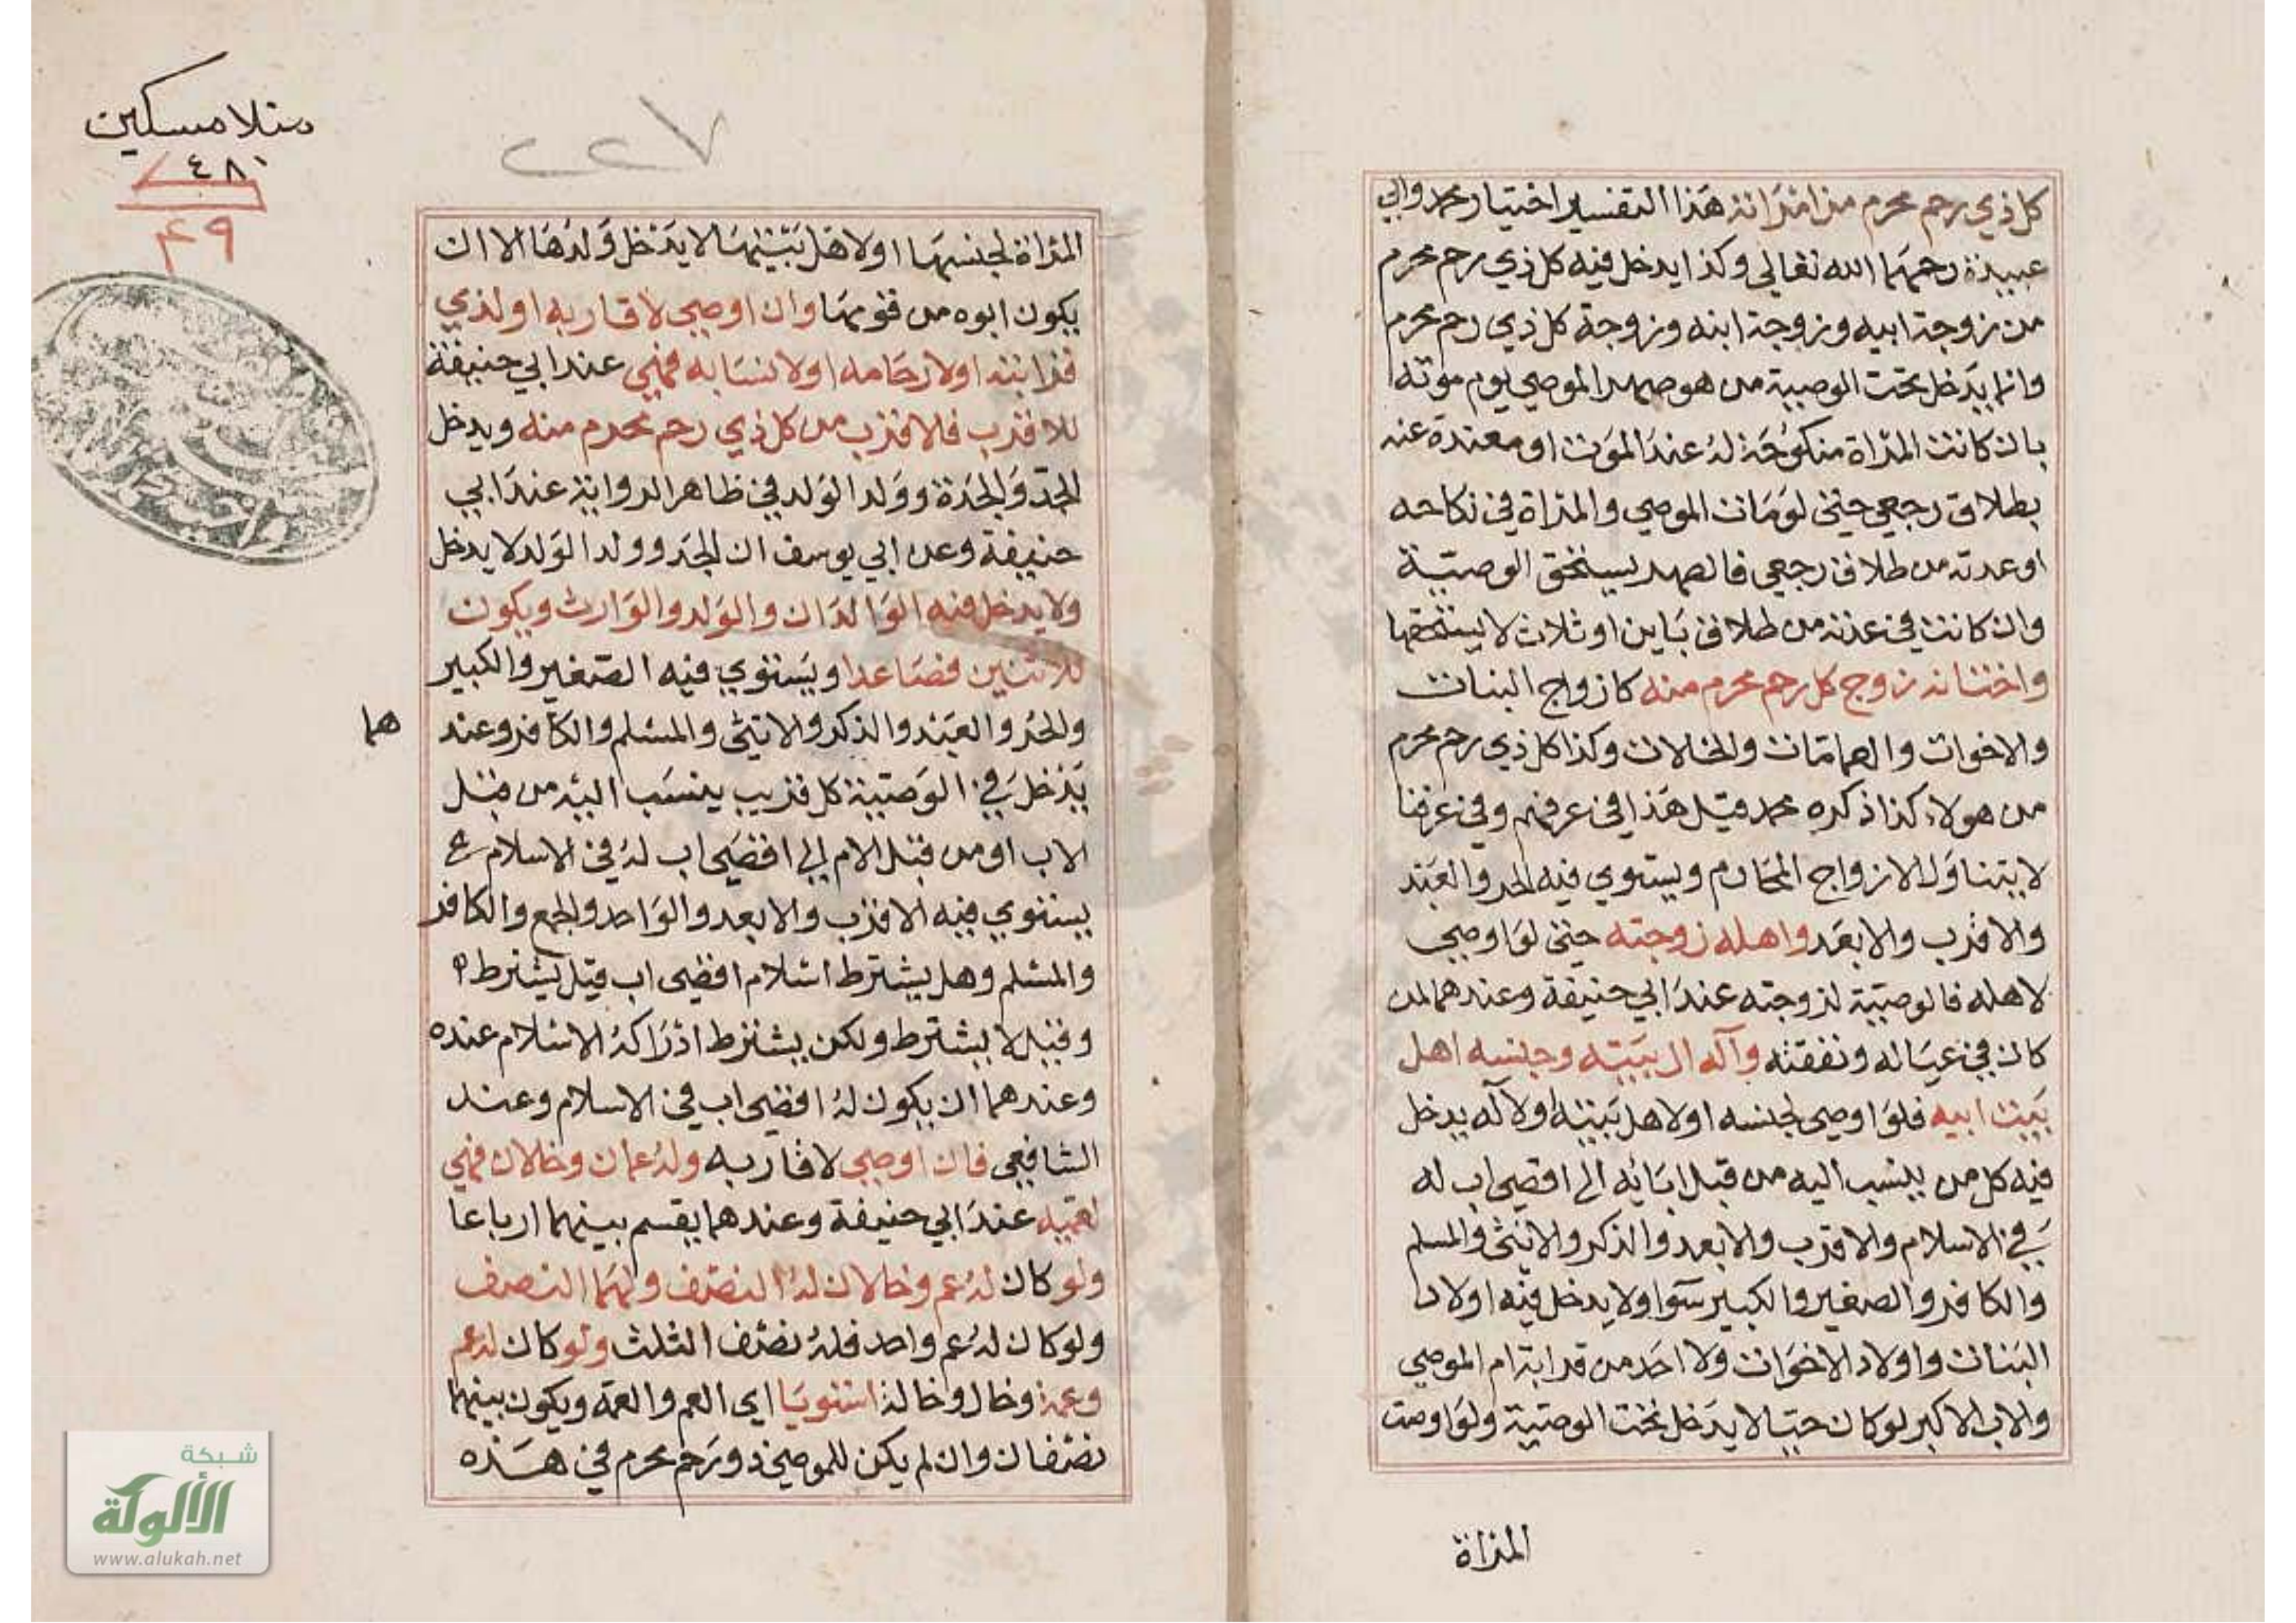 كل ذي رحم محرم من امراته هذا التفسير اختيار محمد وابي
عبيدة رحمهما الله تعالى وكذا يدخل فيه كل ذي رحم محرم
من زوجة ابيه وزوجة ابنه وزوجة كل ذي رحم محرم
وانما يدخل تحت الوصية من هو صهر الموصي يوم موته
بان كانت المراة منكوحة له عند الموت او معتدة عنه
بطلاق رجعي حتى لو مات الموصي والمراة في نكاحه
او عدته من طلاق رجعي فالصهر يستحق الوصية
وان كانت في عدته من طلاق باين او ثلاث لا يستحقها
واختانه زوج كل رحم محرم منه كازواج البنات
والاخوات والعمات والخالات وكذا كل ذي رحم محرم
من هولاء كذا ذكره محمد قيل هذا في عرفهم وفي عرفنا
لا يتناول الا زواج المحارم ويستوي فيه الحر والعبد
والاقرب والابعد واهله زوجته حتى لو اوصى
لاهله فالوصية لزوجته عند ابي حنيفة وعندهما لمن
كان في عياله ونفقته وآله ال بيته وجنسه اهل
بيت ابيه فلو اوصى لجنسه او لاهل بيته او لآله يدخل
فيه كل من ينسب اليه من قبل ابائه الى اقصى اب له
في الاسلام والاقرب والابعد والذكر والانثى والمسلم
والكافر والصغير والكبير سوا ولا يدخل فيه اولاد
البنات واولاد الاخوات ولا احد من قرابة ام الموصي
والاب الاكبر لو كان حيا لا يدخل تحت الوصية ولو اوصت
المراة
منلا مسكين
٤٨١
٤٩
٢٢٧
المراة لجنسها او لاهل بيتها لا يدخل ولدها الا ان
يكون ابوه من قومها وان اوصى لاقاربه او لذي
قرابته او لارحامه او لانسابه فهي عند ابي حنيفة
للاقرب فالاقرب من كل ذي رحم محرم منه ويدخل
الجد والجدة وولد الولد في ظاهر الرواية عند ابي
حنيفة وعن ابي يوسف ان الجد وولد الولد لا يدخل
ولا يدخل فيه الوالدان والولد والوارث ويكون
للاثنين فصاعدا ويستوي فيه الصغير والكبير
والحر والعبد والذكر والانثى والمسلم والكافر وعند
هما
يدخل في الوصية كل قريب ينسب اليه من قبل
الاب او من قبل الام الى اقصى اب له في الاسلام
يستوي فيه الاقرب والابعد والواحد والجمع والكافر
والمسلم وهل يشترط اسلام اقصى اب قيل يشترط
وقيل لا يشترط ولكن يشترط ادراكه الاسلام عنده
وعندهما ان يكون له اقصى اب في الاسلام وعند
الشافعي فان اوصى لاقاربه وله عمان وخالان فهي
لعميه عند ابي حنيفة وعندهما يقسم بينهما ارباعا
ولو كان له عم وخالان له النصف ولهما النصف
ولو كان له عم واحد فله نصف الثلث ولو كان له عم
وعمة وخال وخالة استويا اي العم والعمة ويكون بينهما
نصفان وان لم يكن للموصي ذو رحم محرم في هذه
شبكة
الألوكة
www.alukah.net